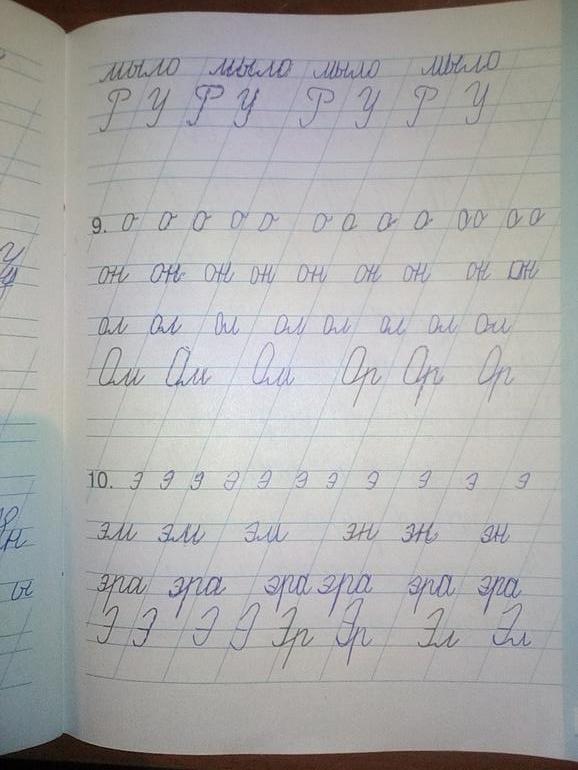 мыло мыло мыло мыло
Р У Р У Р У Р У
9. о о о о о о о о о о о о о
он он он он он он он он он
ом ом ом ом ом ом ом ом
Ом Ом Ом Ор Ор Ор
10. э э э э э э э э э э э
эм эм эм эн эн эн
эра эра эра эра эра эра
Э Э Э Э Эр Эр Эл Эл